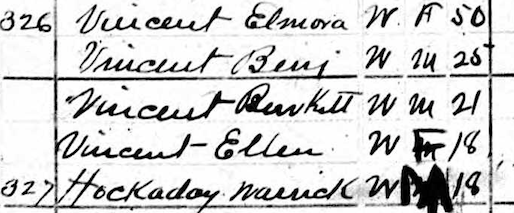 326 Vincent Elmora W. F 50
Vincent Benj W m 25
Vincent Burkitt W m 21
Vincent Ellen W F 18
327 Hockaday Warrick W 18